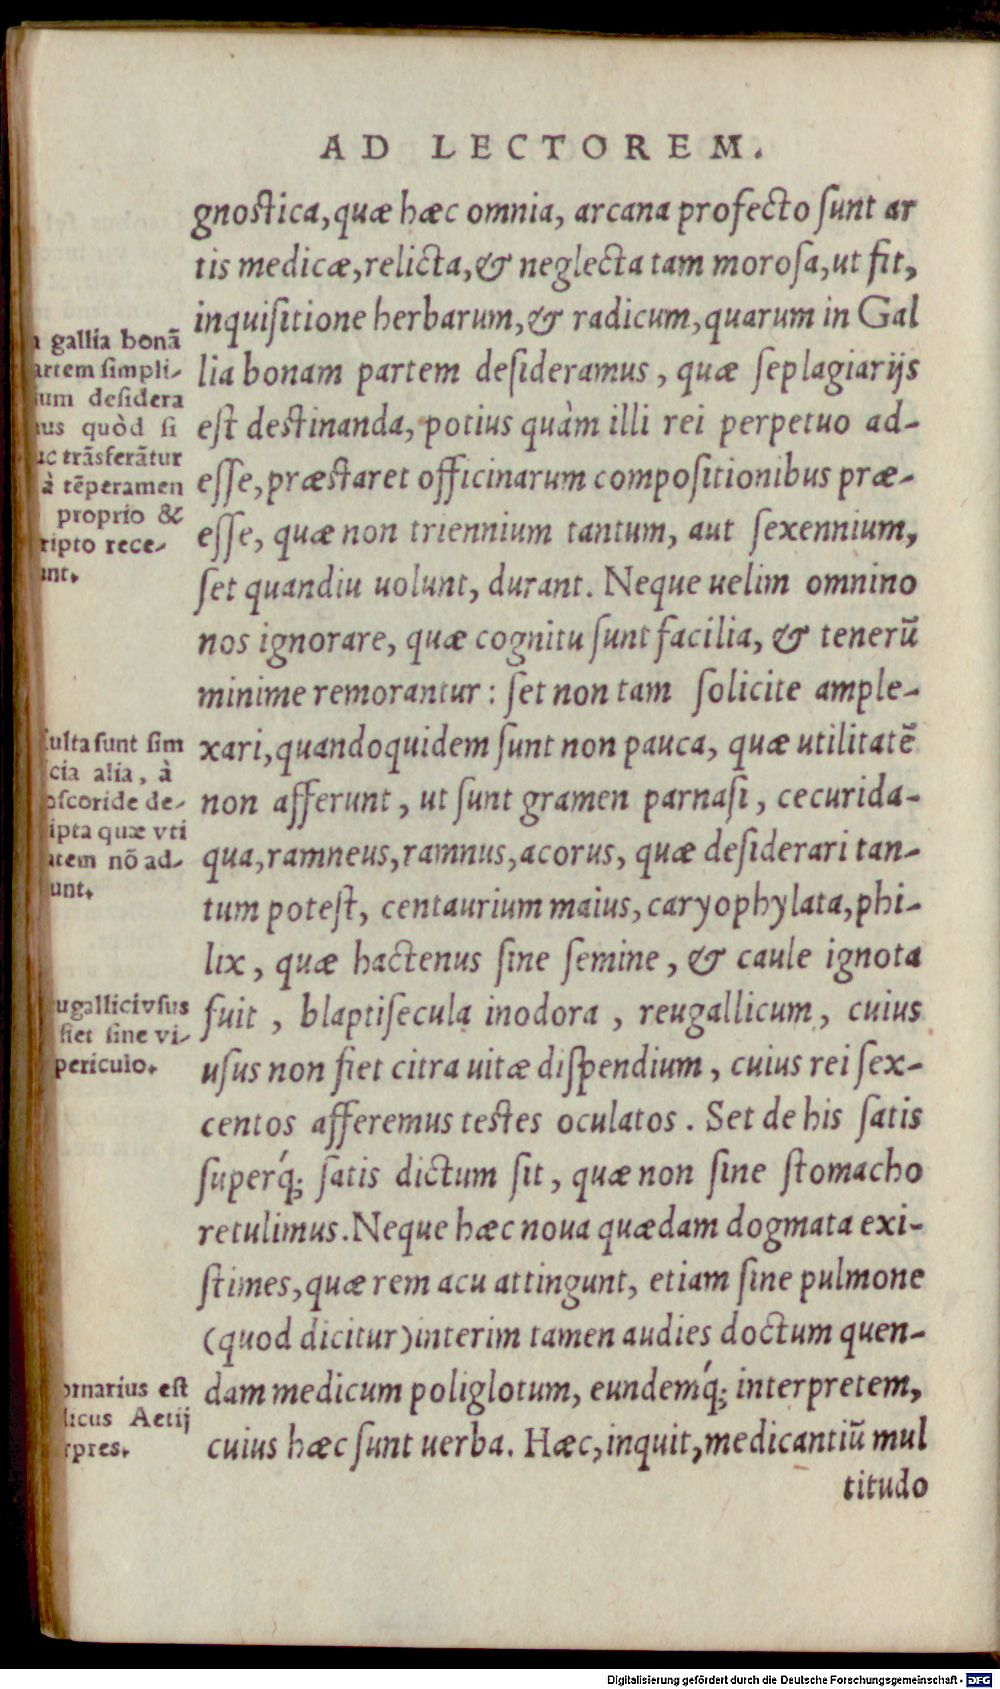 AD LECTOREM.
gnostica, quæ hæc omnia, arcana profecto sunt ar
tis medicæ, relicta, & neglecta tam morosa, ut fit,
inquisitione herbarum, & radicum, quarum in Gal
lia bonam partem desideramus, quæ seplagiarijs
est destinanda, potius quàm illi rei perpetuo ad-
esse, præstaret officinarum compositionibus præ-
esse, quæ non triennium tantum, aut sexennium,
set quandiu uolunt, durant. Neque uelim omnino
nos ignorare, quæ cognitu sunt facilia, & tenerũ
minime remorantur: set non tam solicite ample-
xari, quandoquidem sunt non pauca, quæ utilitatẽ
non afferunt, ut sunt gramen parnasi, cecurida-
qua, ramneus, ramnus, acorus, quæ desiderari tan-
tum potest, centaurium maius, caryophylata, phi-
lix, quæ hactenus sine semine, & caule ignota
fuit, blaptisecula inodora, reugallicum, cuius
usus non fiet citra uitæ dispendium, cuius rei sex-
centos afferemus testes oculatos. Set de his satis
superq́; satis dictum sit, quæ non sine stomacho
retulimus. Neque hæc noua quædam dogmata exi-
stimes, quæ rem acu attingunt, etiam sine pulmone
(quod dicitur) interim tamen audies doctum quen-
dam medicum poliglotum, eundemq́; interpretem,
cuius hæc sunt uerba. Hæc, inquit, medicantiũ mul
titudo
gallia bonã
artem simpli-
ium desidera
us quòd si
uc trãsferãtur
à tẽperamen
proprio &
ripto rece-
unt.
ulta sunt sim
cia alia, à
oscoride de-
ipta quæ vti
atem nõ ad-
unt.
ugallici vsus
fiet sine vi-
periculo.
ornarius est
dicus Aetij
rpres.
Digitalisierung gefördert durch die Deutsche Forschungsgemeinschaft - DFG